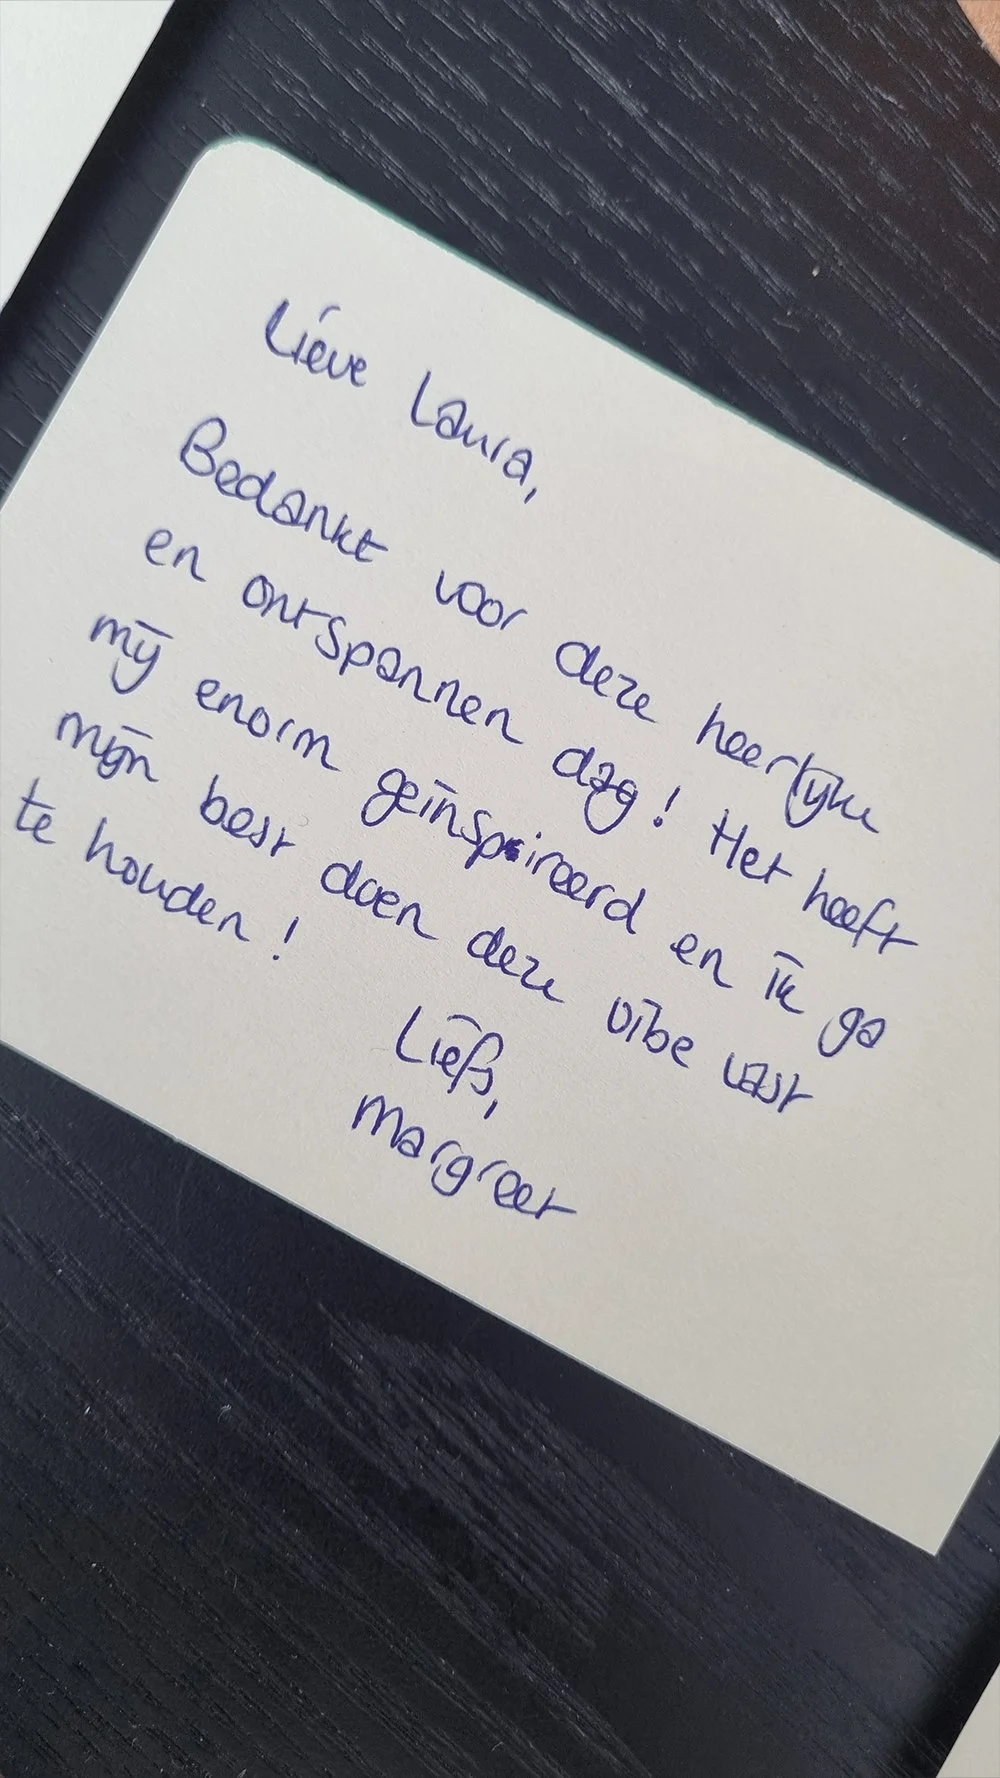 Lieve Laura,
Bedankt voor deze heerlijke
en ontspannen dag! Het heeft
mij enorm geïnspireerd en ik ga
mijn best doen deze vibe vast
te houden!
Liefs,
Margreet